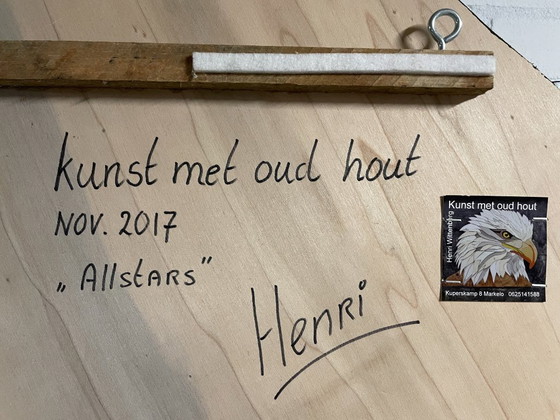 kunst met oud hout
Nov. 2017
„Allstars”
Henri
Kunst met oud hout
Henri Wittenberg
Kuperskamp 8 Markelo 0625141588